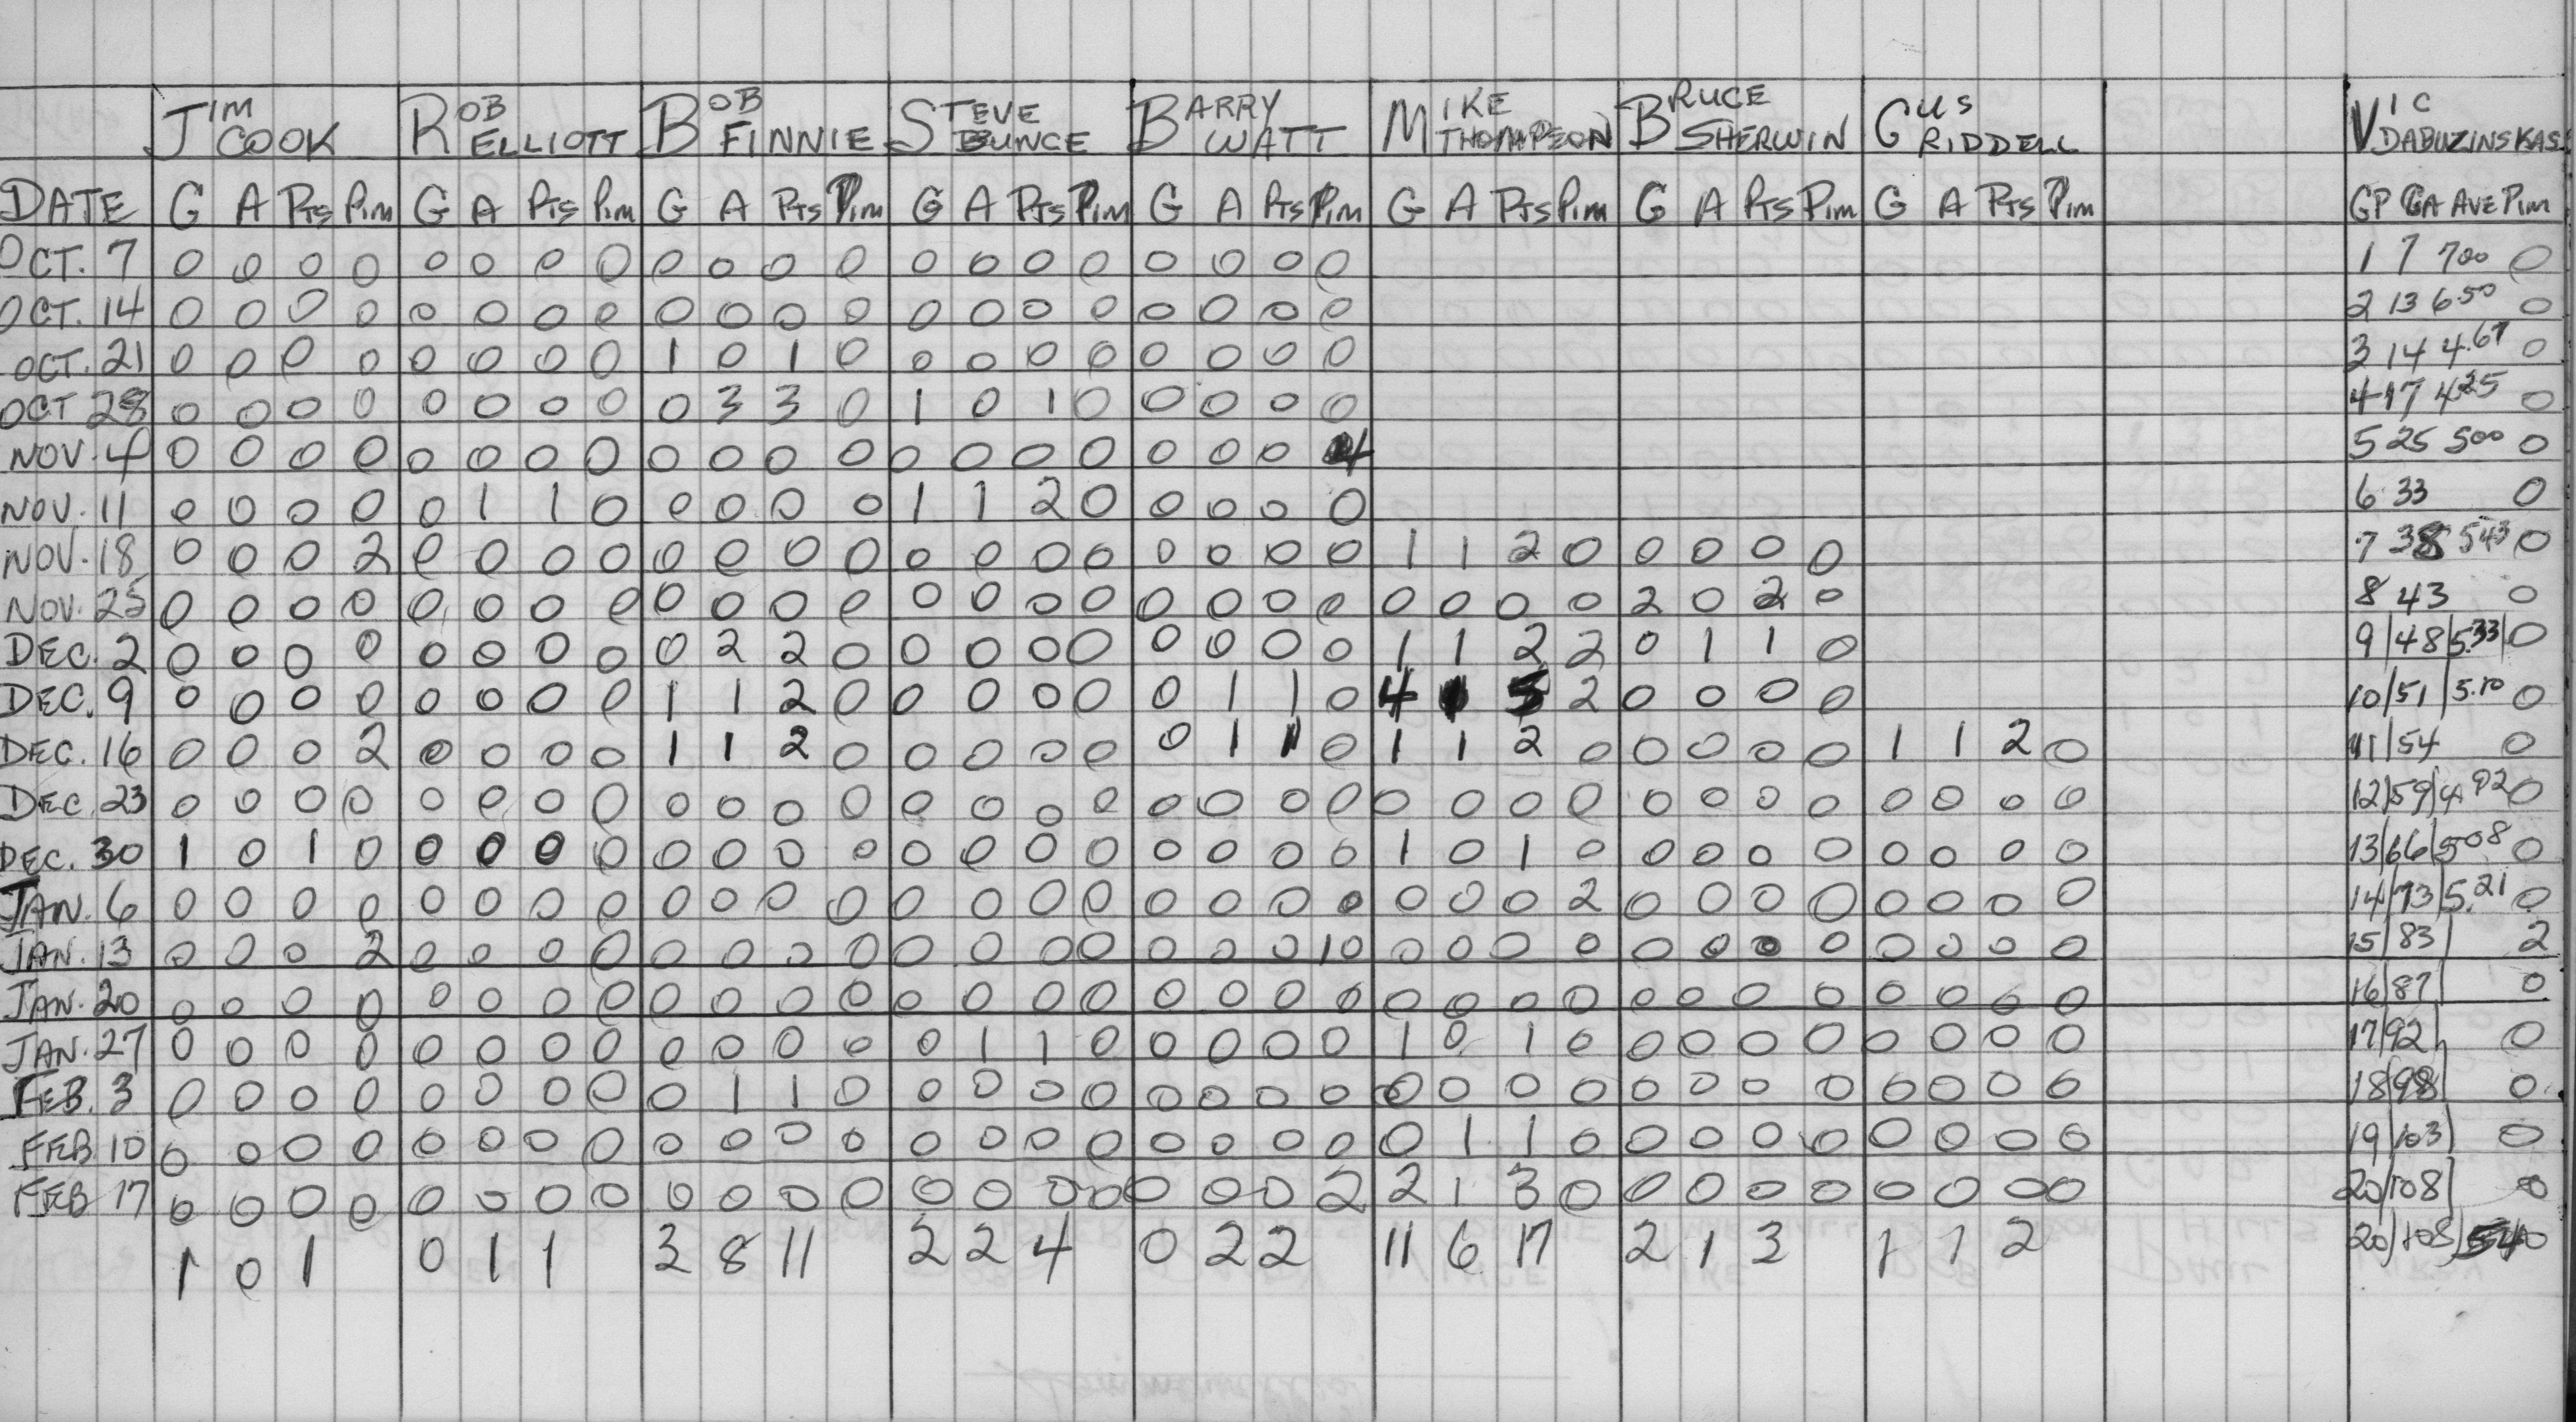 JIM COOK ROB ELLIOTT BOB FINNIE STEVE BUNCE BARRY WATT MIKE THOMPSON BRUCE SHERWIN GUS RIDDELL VIC DABUZINSKAS
DATE G A PTS PIM G A PTS PIM G A PTS PIM G A PTS PIM G A PTS PIM G A PTS PIM G A PTS PIM G A PTS PIM GP GA AVE PIM
OCT. 7 0 0 0 0 0 0 0 0 0 0 0 0 0 0 0 0 0 0 0 0 1 7 700 0
OCT. 14 0 0 0 0 0 0 0 0 0 0 0 0 0 0 0 0 0 0 0 0 2 13 6.50 0
OCT. 21 0 0 0 0 0 0 0 0 1 0 1 0 0 0 0 0 0 0 0 0 3 14 4.67 0
OCT 28 0 0 0 0 0 0 0 0 0 3 3 0 1 0 1 0 0 0 0 0 4 17 425 0
NOV. 4 0 0 0 0 0 0 0 0 0 0 0 0 0 0 0 0 0 0 0 4 5 25 500 0
NOV. 11 0 0 0 0 0 1 1 0 0 0 0 0 1 1 2 0 0 0 0 0 6 33 0
NOV. 18 0 0 0 2 0 0 0 0 0 0 0 0 0 0 0 0 0 0 0 0 1 1 2 0 0 0 0 0 7 38 543 0
NOV. 25 0 0 0 0 0 0 0 0 0 0 0 0 0 0 0 0 0 0 0 0 0 0 0 0 2 0 2 0 8 43 0
DEC. 2 0 0 0 0 0 0 0 0 0 2 2 0 0 0 0 0 0 0 0 0 1 1 2 2 0 1 1 0 9/48/5.33/0
DEC. 9 0 0 0 0 0 0 0 0 1 1 2 0 0 0 0 0 0 1 1 0 4 1 5 2 0 0 0 0 10/51/5.10 0
DEC. 16 0 0 0 2 0 0 0 0 1 1 2 0 0 0 0 0 0 1 1 0 1 1 2 0 0 0 0 0 1 1 2 0 11/54 0
DEC. 23 0 0 0 0 0 0 0 0 0 0 0 0 0 0 0 0 0 0 0 0 0 0 0 0 0 0 0 0 0 0 0 0 12/59/4 92 0
DEC. 30 1 0 1 0 0 0 0 0 0 0 0 0 0 0 0 0 0 0 0 0 1 0 1 0 0 0 0 0 0 0 0 0 13/66/508 0
JAN. 6 0 0 0 0 0 0 0 0 0 0 0 0 0 0 0 0 0 0 0 0 0 0 0 2 0 0 0 0 0 0 0 0 14/73/5.21 0
JAN. 13 0 0 0 2 0 0 0 0 0 0 0 0 0 0 0 0 0 0 0 10 0 0 0 0 0 0 0 0 0 0 0 0 15/83/ 2
JAN. 20 0 0 0 0 0 0 0 0 0 0 0 0 0 0 0 0 0 0 0 0 0 0 0 0 0 0 0 0 0 0 0 0 16/87/ 0
JAN. 27 0 0 0 0 0 0 0 0 0 0 0 0 0 1 1 0 0 0 0 0 1 0 1 0 0 0 0 0 0 0 0 0 17/92/ 0
FEB. 3 0 0 0 0 0 0 0 0 0 1 1 0 0 0 0 0 0 0 0 0 0 0 0 0 0 0 0 0 0 0 0 0 18/98/ 0
FEB 10 0 0 0 0 0 0 0 0 0 0 0 0 0 0 0 0 0 0 0 0 0 1 1 0 0 0 0 0 0 0 0 0 19/103/ 0
FEB 17 0 0 0 0 0 0 0 0 0 0 0 0 0 0 0 0 0 0 0 2 2 1 3 0 0 0 0 0 0 0 0 0 20/108/ 0
1 0 1 0 1 1 3 8 11 2 2 4 0 2 2 11 6 17 2 1 3 1 1 2 20/108/540